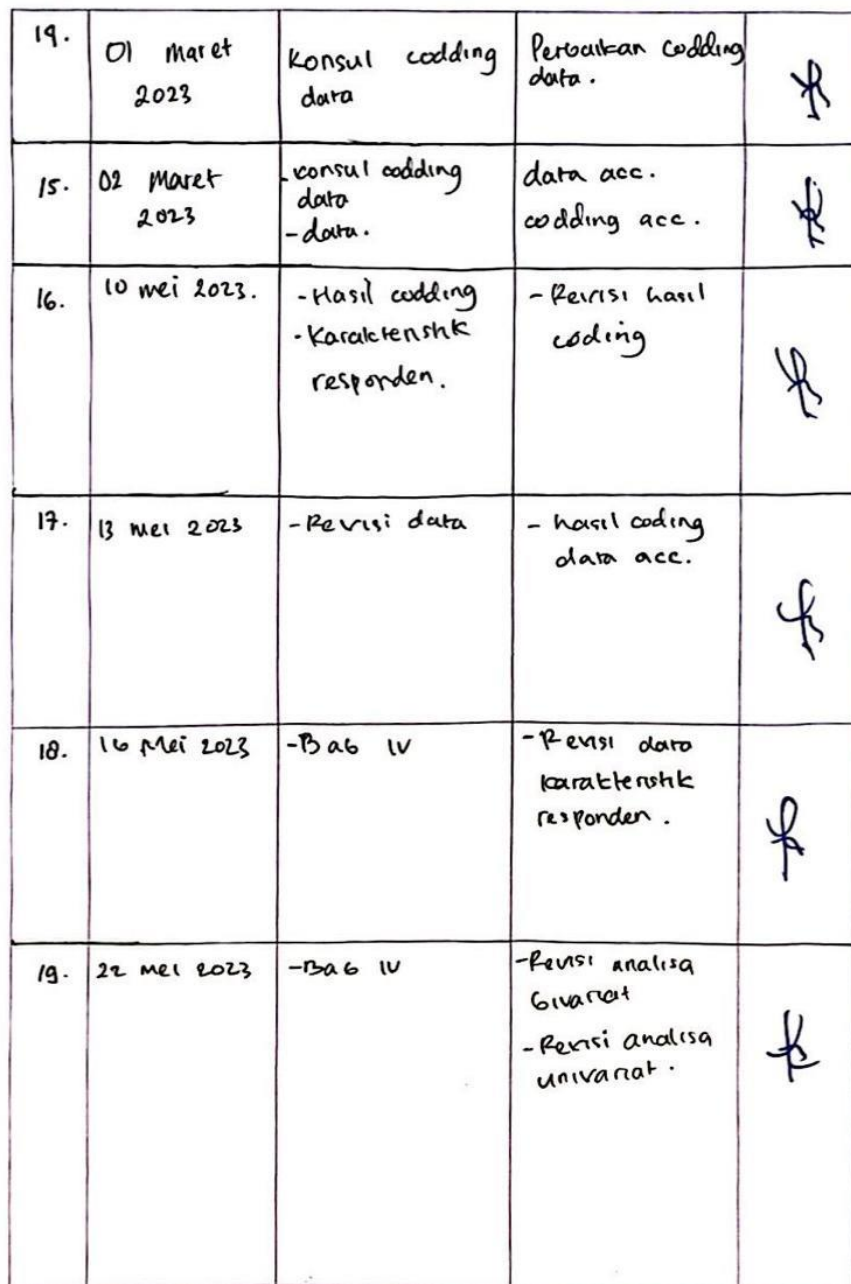 14.
01 Maret
2023
Konsul codding
data
Perbaikan codding
data.
15.
02 Maret
2023
- konsul codding
data
- data.
data acc.
codding acc.
16.
10 mei 2023.
- Hasil codding
- Karakteristik
responden.
- Revisi hasil
coding
17.
13 mei 2023
- Revisi data
- hasil coding
data acc.
18.
16 Mei 2023
- Bab IV
- Revisi data
karakteristik
responden.
19.
22 mei 2023
- Bab IV
- Revisi analisa
bivariat
- Revisi analisa
univariat.